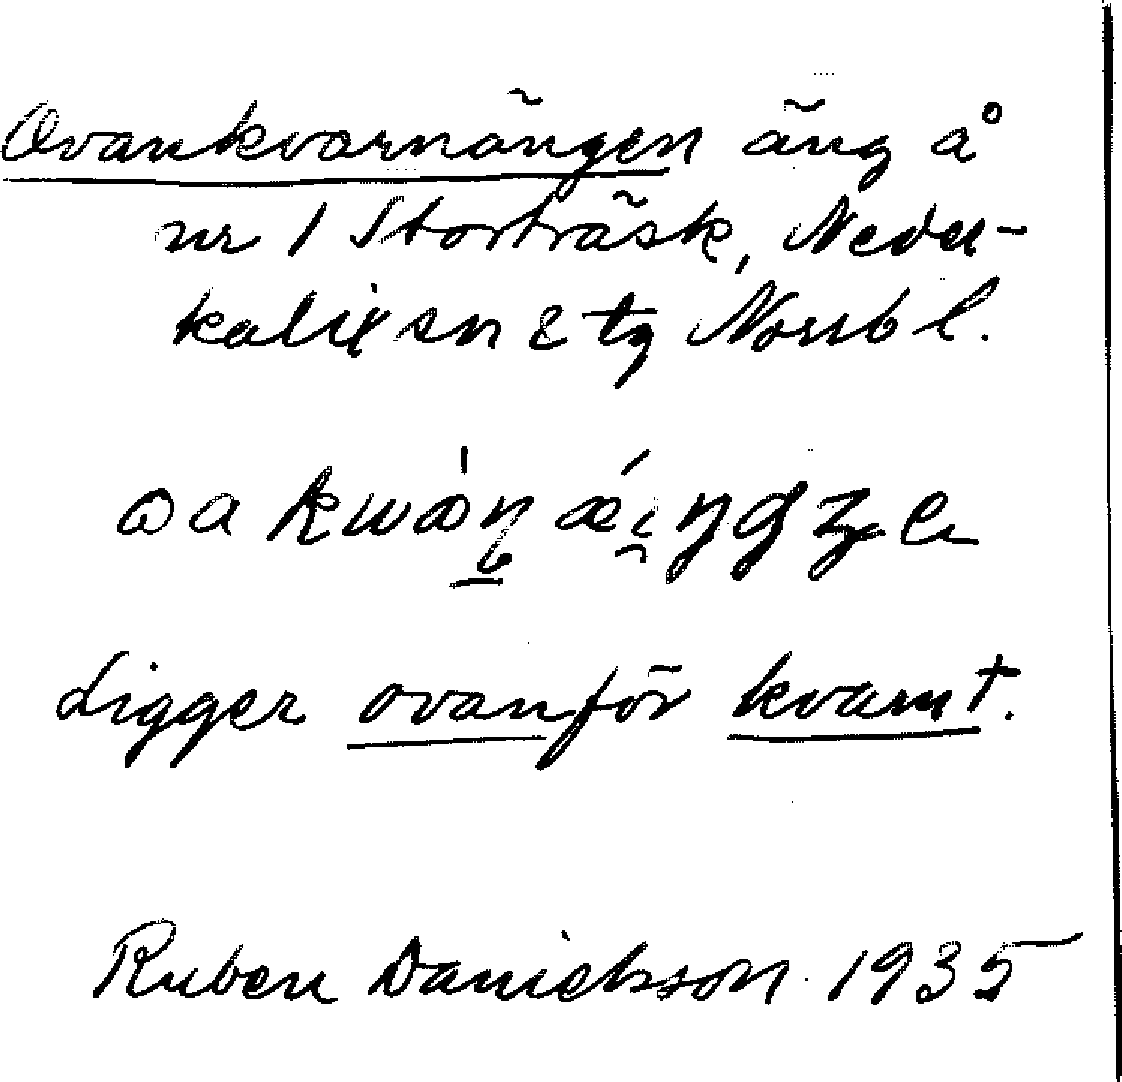 Ovankvarnängen äng å
nr 1 Storträsk, Neder-
kalix sn & tg Norrb l.
Ligger ovanför kvarnt.
Ruben Danielsson 1935